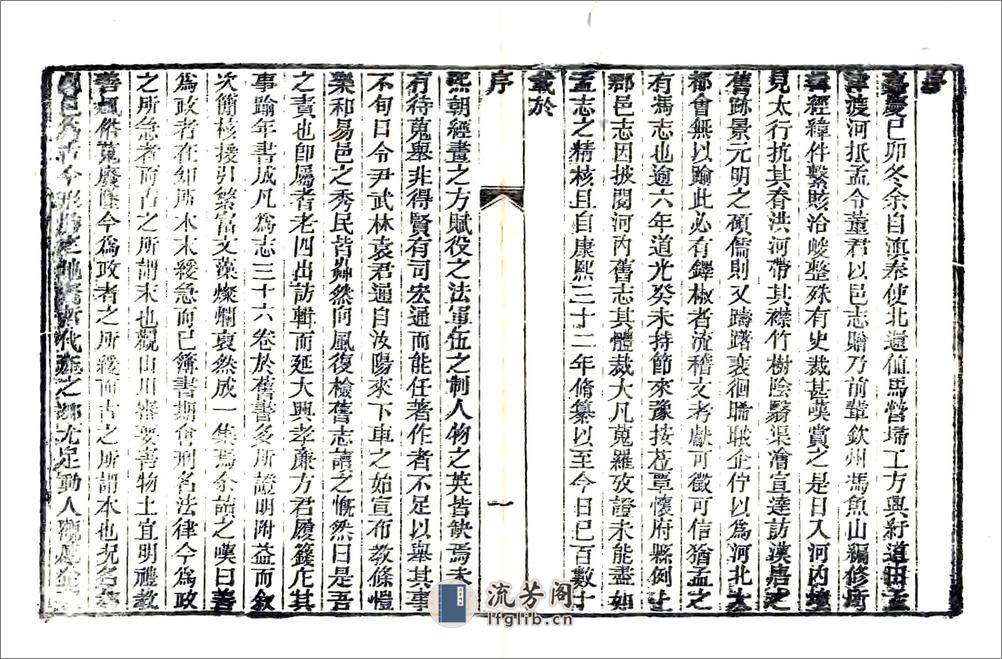 序
嘉慶己卯冬余自滇奉使北還值馬營埽工方興紆道由孟
津渡河抵孟令董君以邑志贈乃前輩欽州馮魚山編修所
輯經緯件繫賅洽峻整殊有史裁甚葖賞之是日入河內境
見太行抗其脊洪河帶其襟竹樹陰翳渠澮宣達訪漢唐之
舊跡景元明之碩儒則又躊躇裵徊睎聮企佇以爲河北大
都會無以踰此必有鐸椒者流稽文考獻可徵可信猶孟之
有馮志也逾六年道光癸未持節來豫按蒞覃懷府縣例上
郡邑志因披閱河內舊志其體裁大凡蒐羅攷證未能盡如
孟志之精核且自康熙三十二年脩纂以至今日已百數十
載於
序
一
熙朝經畫之方賦役之法軍伍之制人物之英皆缺焉未
有待蒐舉非得賢有司宏通而能任著作者不足以舉其事
不旬日令尹武林袁君通自汝陽來下車之始宣布教條愷
樂和易邑之秀民皆翕然向風復檢舊志讀之慨然曰是吾
之責也卽屬耆老四出訪輯而延大興孝廉方君履籛庀其
事踰年書成凡爲志三十六卷於舊書多所證明附益而敘
次簡核援引繁富文藻燦爛裒然成一集焉余讀之嘆曰善
爲政者在知所本末緩急而已簿書期會刑名法律今爲政
之所急者而古之所謂末也觀山川審要害物土宜明禮教
善風俗蒐廢墜今爲政者之所緩而古之所謂本也況名
古今形勝之地
代
之鄉尤足動人觀感
流芳阁
lfglib.cn